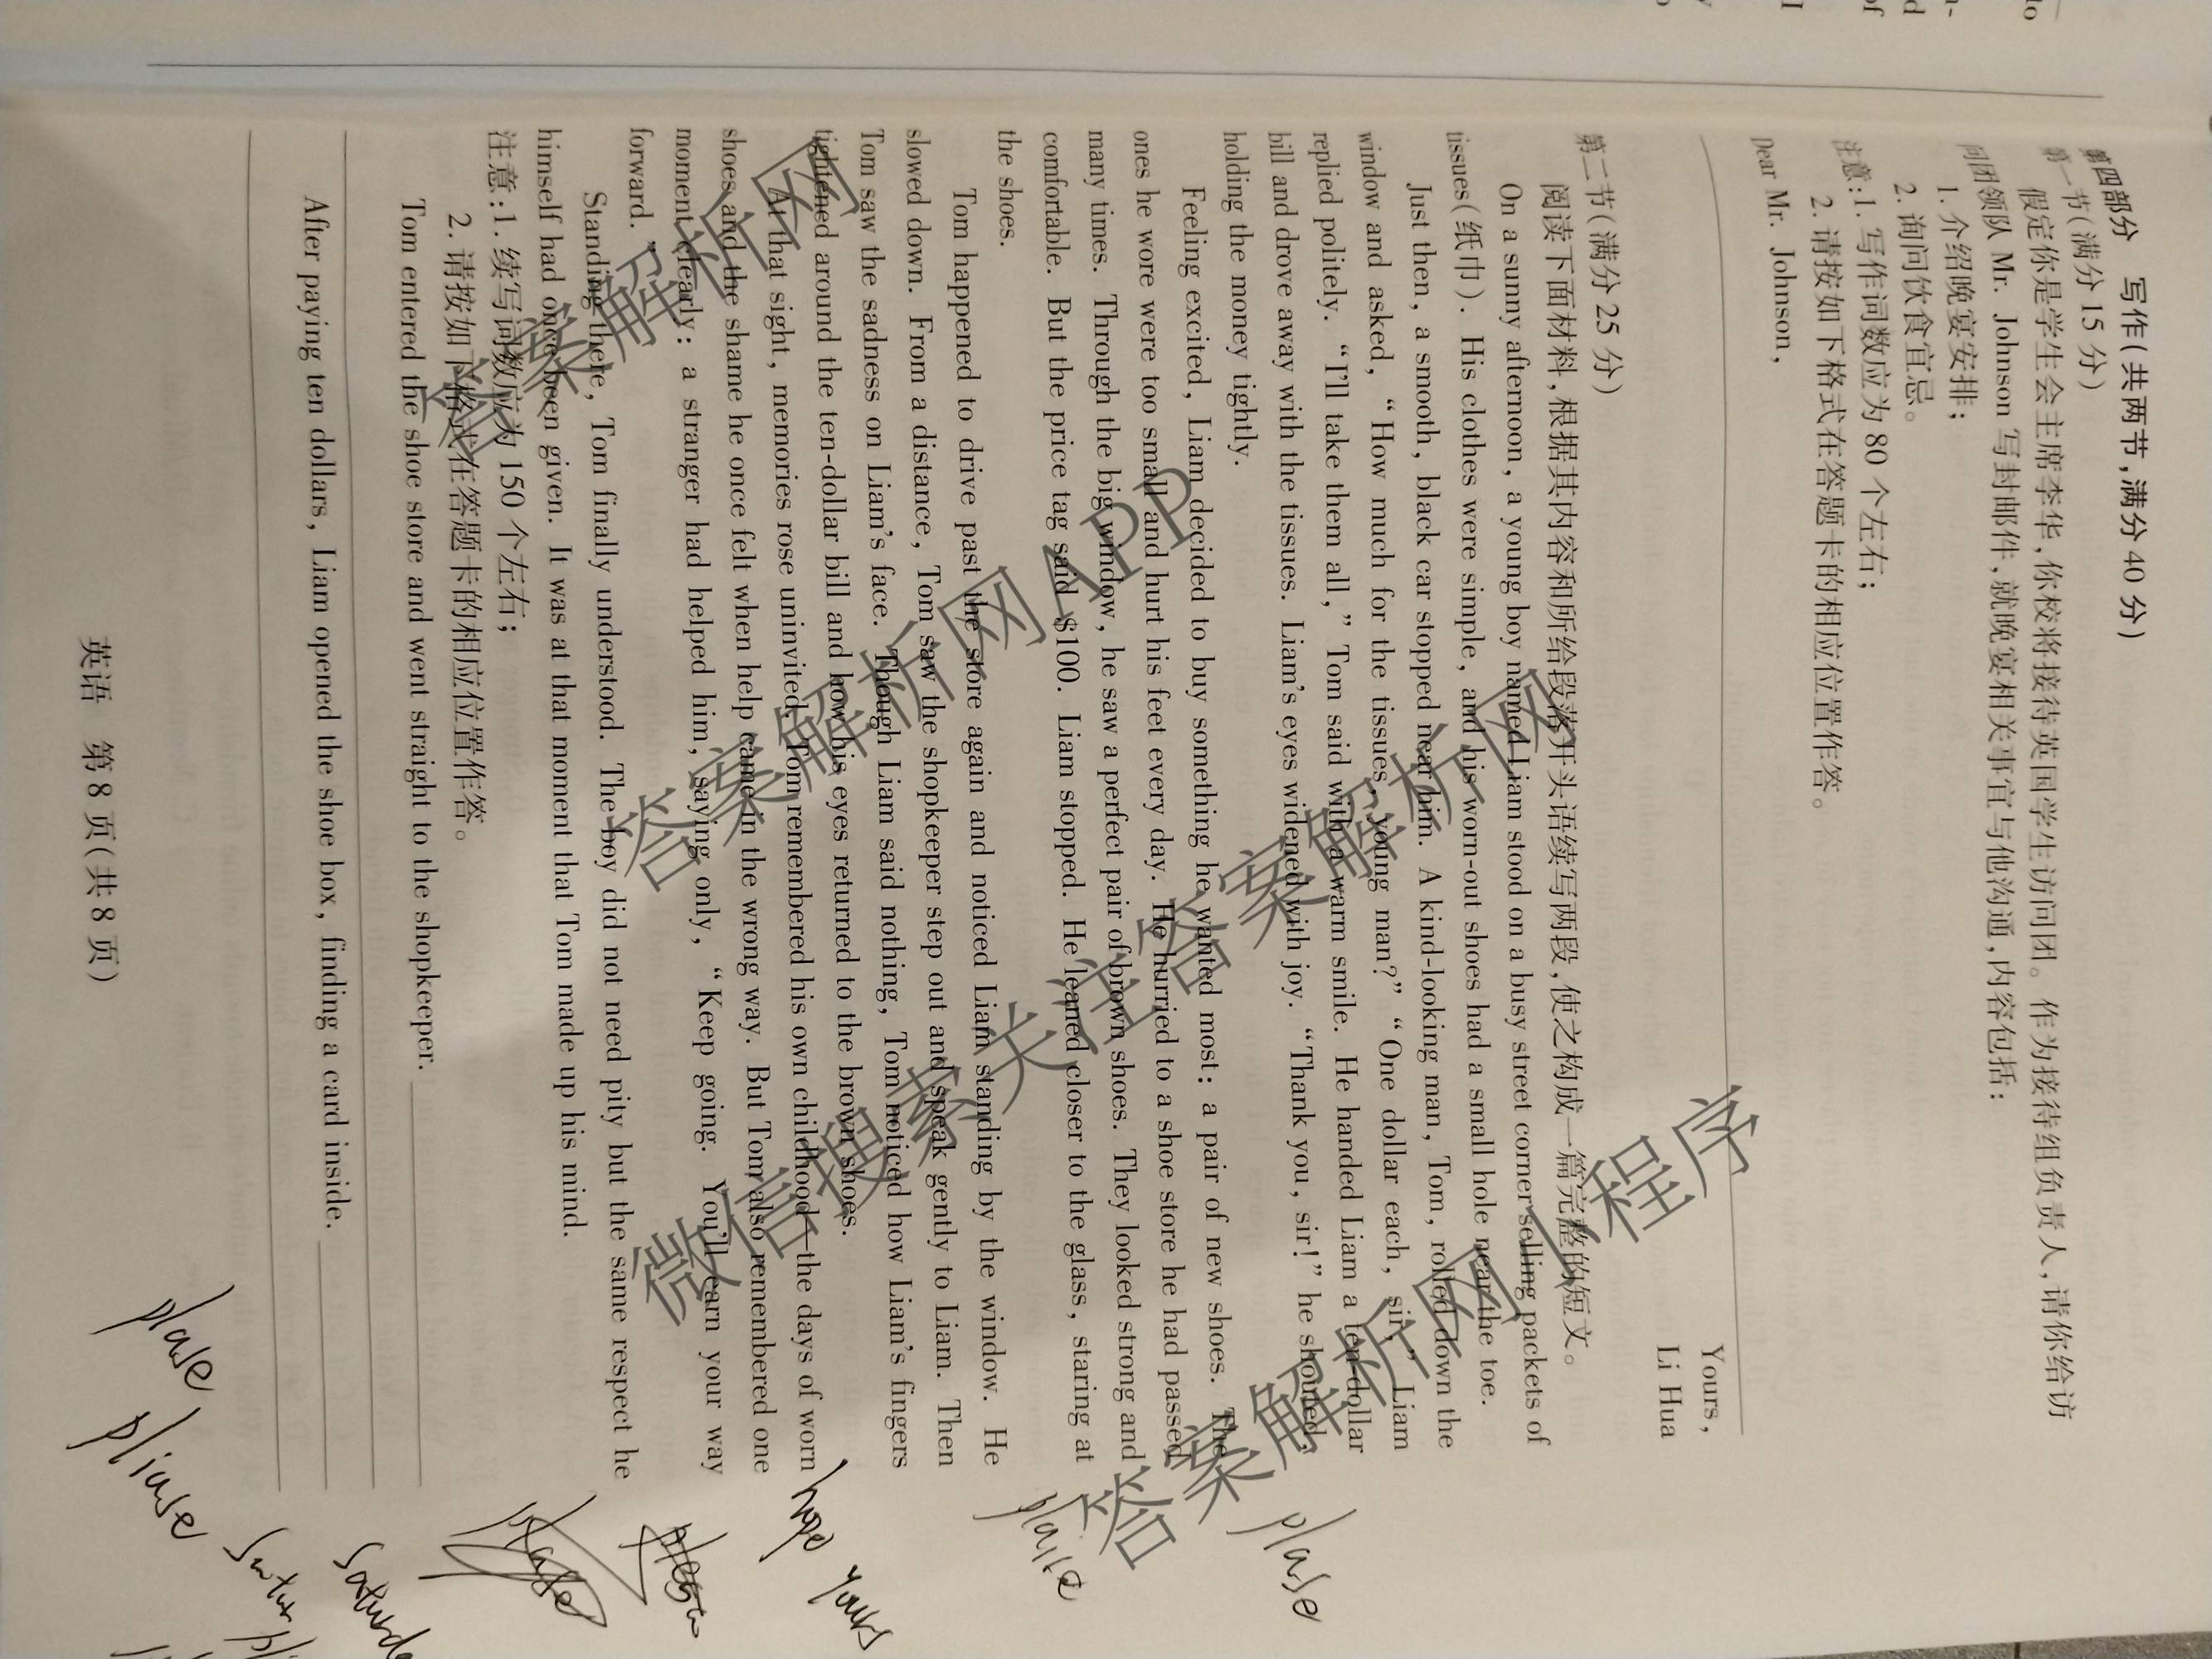 第四部分 写作(共两节,满分 40 分)
第一节(满分 15 分)
假定你是学生会主席李华,你校将接待英国学生访问团。作为接待组负责人,请你给访
问团领队 Mr. Johnson 写封邮件,就晚宴相关事宜与他沟通,内容包括:
1. 介绍晚宴安排;
2. 询问饮食宜忌。
注意:1. 写作词数应为 80 个左右;
2. 请按如下格式在答题卡的相应位置作答。
Dear Mr. Johnson,
Yours,
Li Hua
第二节(满分 25 分)
阅读下面材料,根据其内容和所给段落开头语续写两段,使之构成一篇完整的短文。
On a sunny afternoon, a young boy named Liam stood on a busy street corner selling packets of
tissues(纸巾). His clothes were simple, and his worn-out shoes had a small hole near the toe.
Just then, a smooth, black car stopped near him. A kind-looking man, Tom, rolled down the
window and asked, “How much for the tissues, young man?” “One dollar each, sir,” Liam
replied politely. “I’ll take them all,” Tom said with a warm smile. He handed Liam a ten-dollar
bill and drove away with the tissues. Liam’s eyes widened with joy. “Thank you, sir!” he shouted,
holding the money tightly.
Feeling excited, Liam decided to buy something he wanted most: a pair of new shoes. The
ones he wore were too small and hurt his feet every day. He hurried to a shoe store he had passed
many times. Through the big window, he saw a perfect pair of brown shoes. They looked strong and
comfortable. But the price tag said $100. Liam stopped. He leaned closer to the glass, staring at
the shoes.
Tom happened to drive past the store again and noticed Liam standing by the window. He
slowed down. From a distance, Tom saw the shopkeeper step out and speak gently to Liam. Then
Tom saw the sadness on Liam’s face. Though Liam said nothing, Tom noticed how Liam’s fingers
tightened around the ten-dollar bill and how his eyes returned to the brown shoes.
At that sight, memories rose uninvited. Tom remembered his own childhood—the days of worn
shoes and the shame he once felt when help came in the wrong way. But Tom also remembered one
moment clearly: a stranger had helped him, saying only, “Keep going. You’ll earn your way
forward.”
Standing there, Tom finally understood. The boy did not need pity but the same respect he
himself had once been given. It was at that moment that Tom made up his mind.
注意:1. 续写词数应为 150 个左右;
2. 请按如下格式在答题卡的相应位置作答。
Tom entered the shoe store and went straight to the shopkeeper.
After paying ten dollars, Liam opened the shoe box, finding a card inside.
英语 第 8 页(共 8 页)
答案解析网
答案解析网APP
微信搜索关注答案解析网
答案解析网小程序
plase
hope yours
plase
pliase